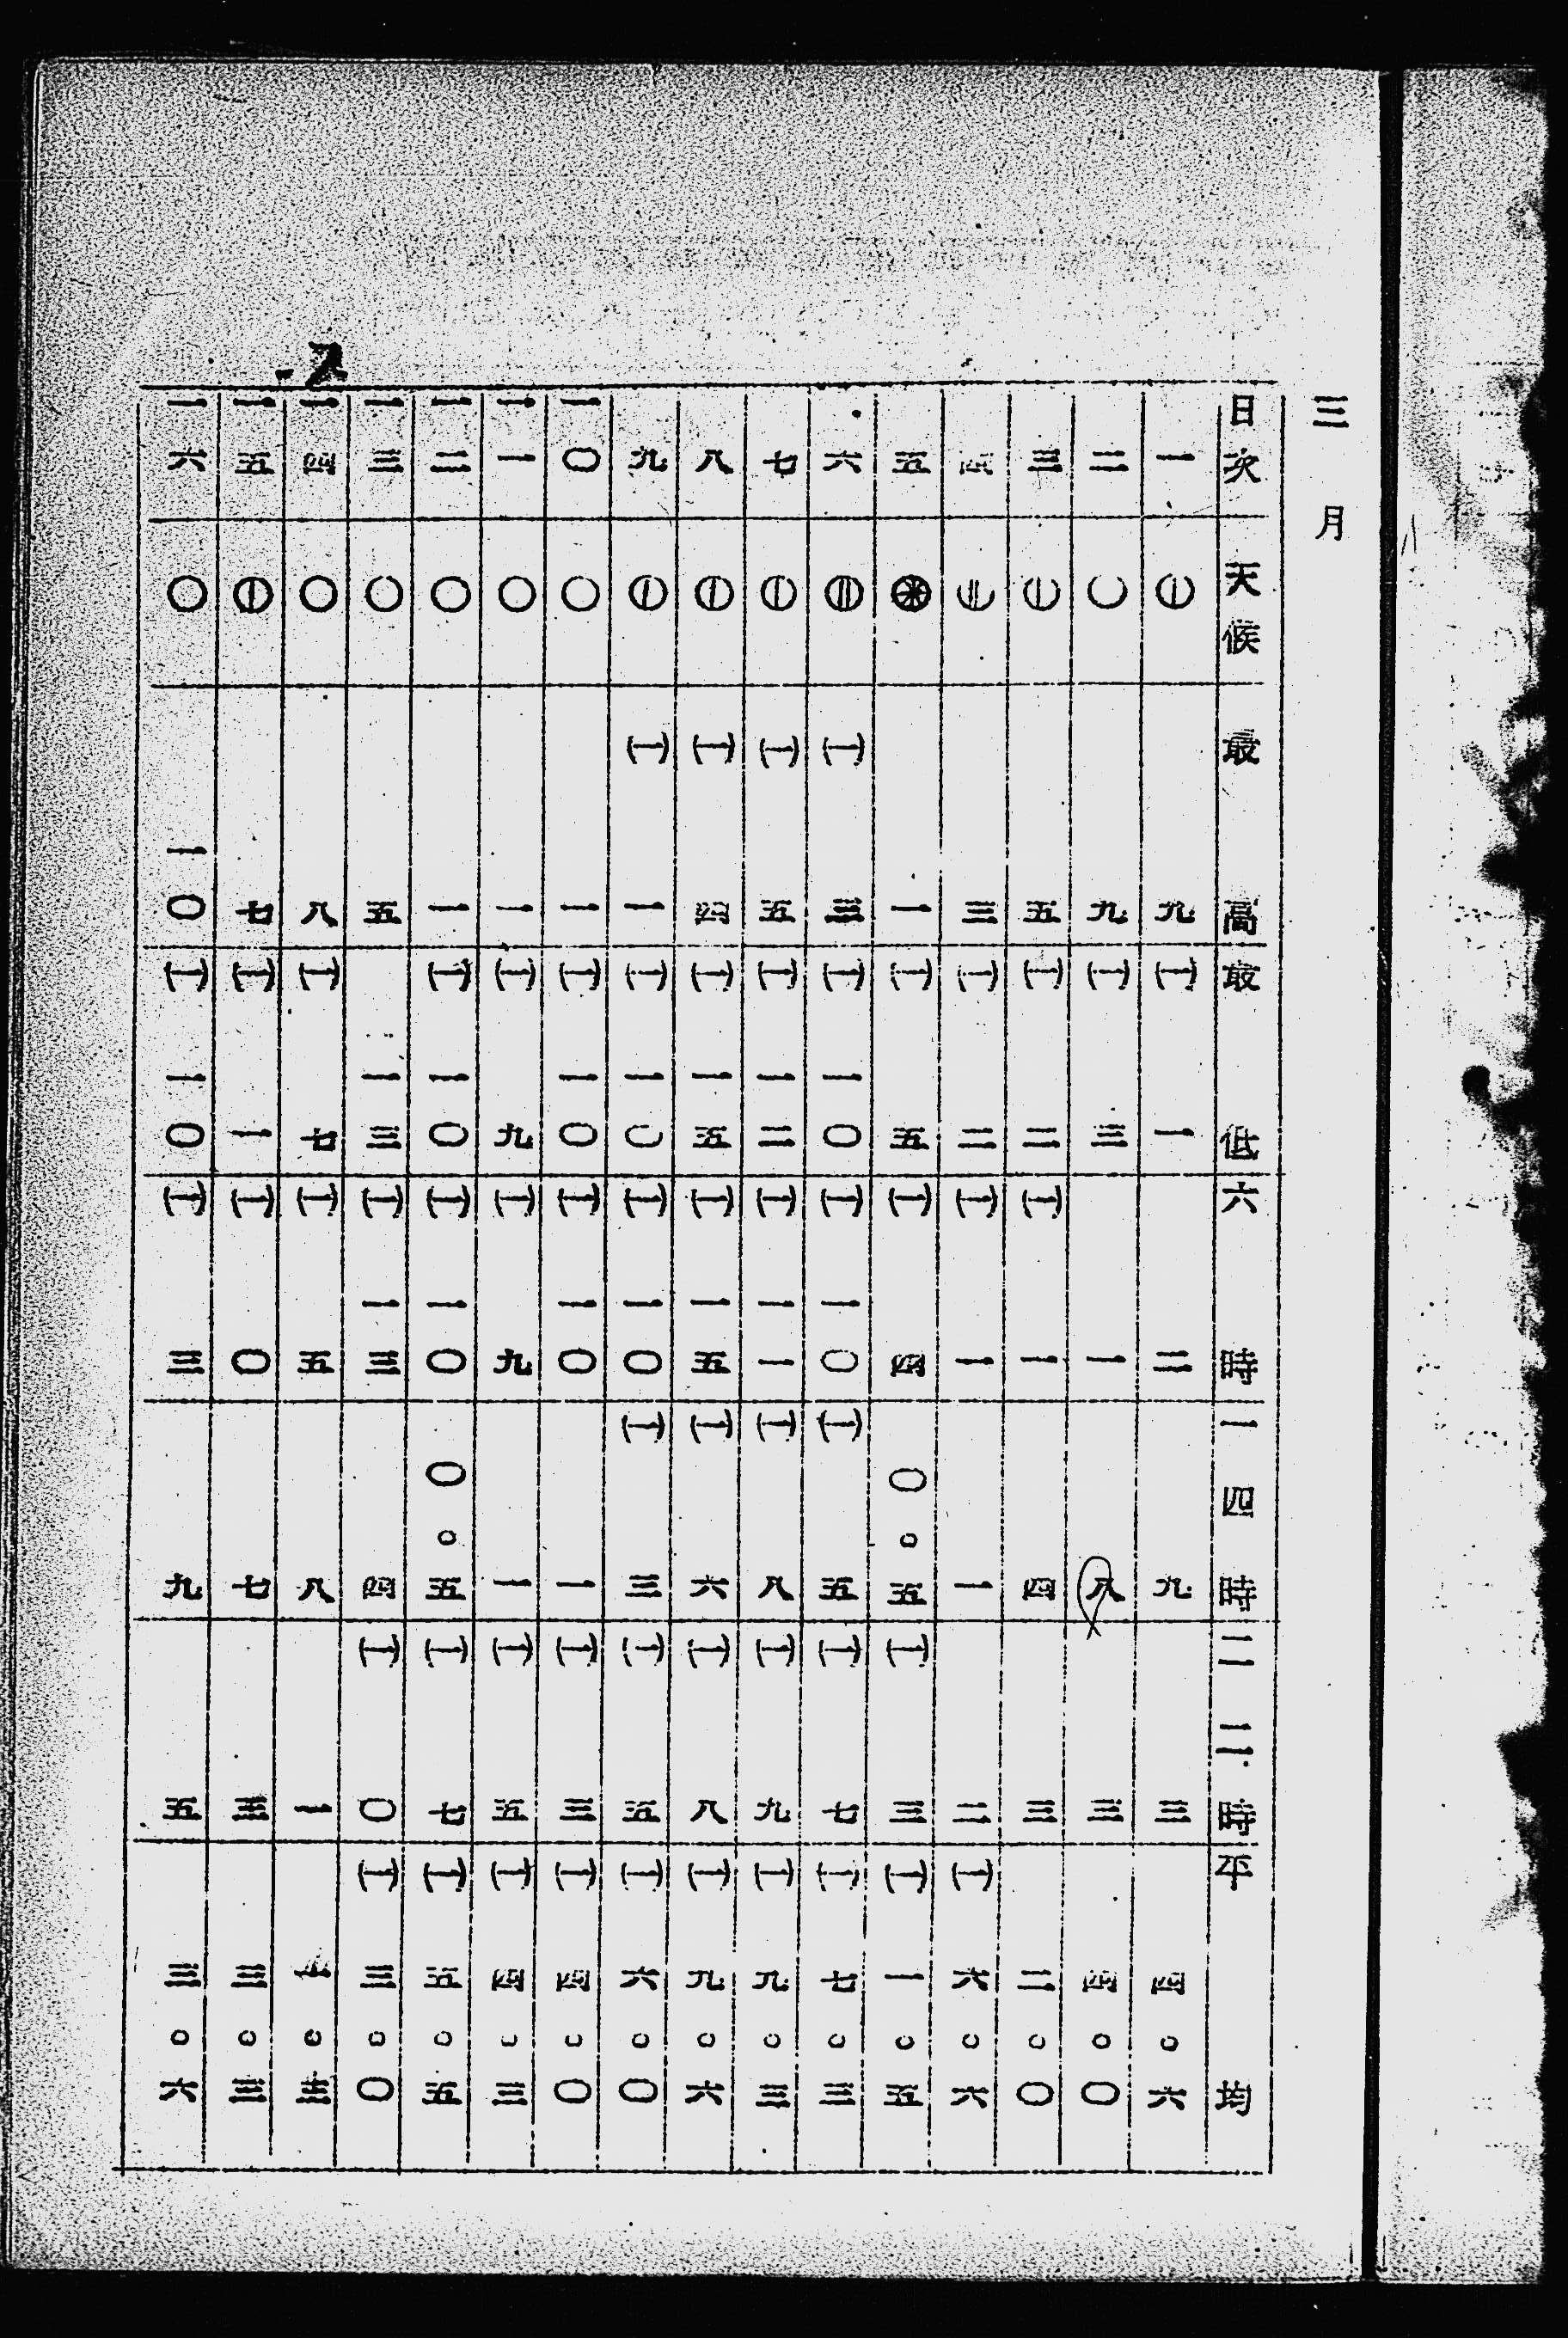 三月
日次 天候 最高 最低 六時 一四時 二二時 平均
一 ⦶ 九 (一)一 二 九 三 四。六
二 ○ 九 (一)三 一 八 三 四。〇
三 ⦶ 五 (一)二 (一)一 四 三 二。〇
四 ◍ 三 (一)二 (一)一 一 二 (一)六。六
五 ⊛ 一 (一)五 (一)四 〇。五 (一)三 (一)一。五
六 ◍ (一)三 (一)一〇 (一)一〇 (一)五 (一)七 (一)七。三
七 ⦶ (一)五 (一)一二 (一)一一 (一)八 (一)九 (一)九。三
八 ⦶ (一)四 (一)一五 (一)一五 (一)六 (一)八 (一)九。六
九 ⦶ (一)一 (一)一〇 (一)一〇 (一)三 (一)五 (一)六。〇
一〇 ○ 一 (一)一〇 (一)一〇 一 (一)三 (一)四。〇
一一 ○ 一 (一)九 (一)九 一 (一)五 (一)四。三
一二 ○ 一 (一)一〇 (一)一〇 〇。五 (一)七 (一)五。五
一三 ○ 五 一三 (一)一三 四 (一)〇 (一)三。〇
一四 ○ 八 (一)七 (一)五 八 一 。三
一五 ⦶ 七 (一)一 (一)〇 七 三 三。三
一六 ○ 一〇 (一)一〇 (一)三 九 五 三。六